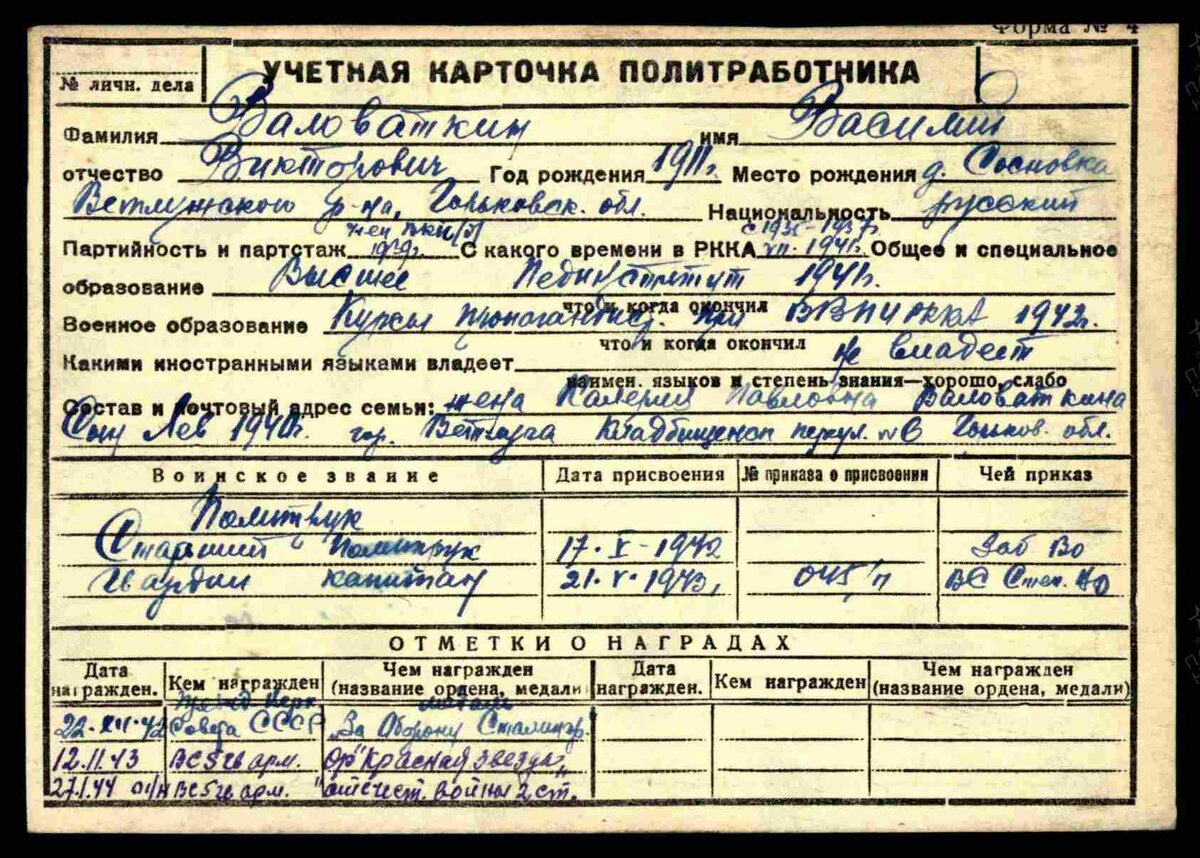 Форма № 4
№ личн. дела
УЧЕТНАЯ КАРТОЧКА ПОЛИТРАБОТНИКА
Фамилия Валоваткин имя Василий
отчество Викторович Год рождения 1911г. Место рождения д. Сосновка
Ветлужского р-на, Горьковск. обл. Национальность русский
член ВКП(б) с 1935-1937г.
Партийность и партстаж 1939г. С какого времени в РККА VII-1941г. Общее и специальное
образование Высшее Пединститут 1941г.
что и когда окончил
Военное образование Курсы при ВВПИ РККА 1942г.
что и когда окончил
Какими иностранными языками владеет не владеет
наимен. языков и степень знания—хорошо, слабо
Состав и почтовый адрес семьи: жена Калерия Павловна Валоваткина
Сын Лев 1940г. гор. Ветлуга Кладбищенск. переул. №6 Горьков. обл.
Воинское звание Дата присвоения № приказа о присвоении Чей приказ
Политрук
Старший политрук 17-X-1942 Заб ВО
Гвардии капитан 21-V-1943, 045/п ВС Степ. ВО
ОТМЕТКИ О НАГРАДАХ
Дата награжден. Кем награжден Чем награжден (название ордена, медали) Дата награжден. Кем награжден Чем награжден (название ордена, медали)
22-XII-42 През-д Верх. Совета СССР медаль "За Оборону Сталингр.
12.11.43 ВС 5 гв арм. ор "Красная звезда"
27.1.44 ВС 5 гв арм. "отечест. войны 2 ст.